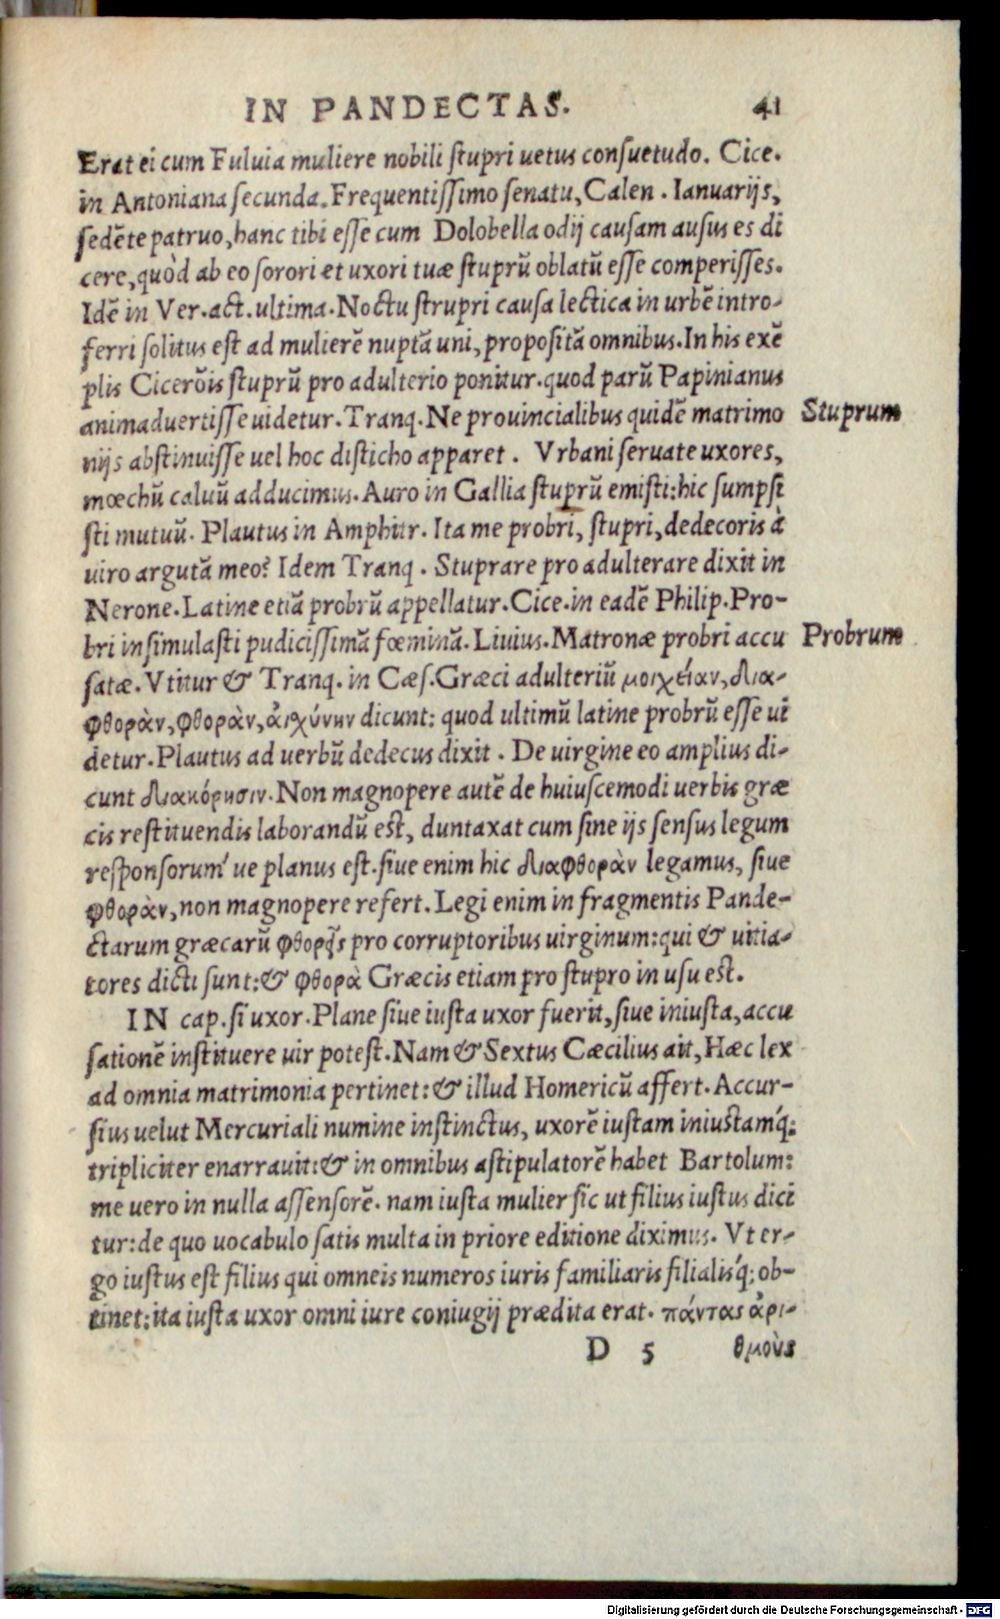 IN PANDECTAS. 41
Erat ei cum Fuluia muliere nobili stupri uetus consuetudo. Cice.
in Antoniana secunda. Frequentissimo senatu, Calen. Ianuarijs,
sedēte patruo, hanc tibi esse cum Dolobella odij causam ausus es di
cere, quòd ab eo sorori et uxori tuæ stuprū oblatū esse comperisses.
Idē in Ver. act. ultima. Noctu strupri causa lectica in urbē intro-
ferri solitus est ad mulierē nuptā uni, propositā omnibus. In his exē
plis Cicerōis stuprū pro adulterio ponitur. quod parū Papinianus
animaduertisse uidetur. Tranq. Ne prouincialibus quidē matrimo
Stuprum
nijs abstinuisse uel hoc disticho apparet. Vrbani seruate uxores,
mœchū caluū adducimus. Auro in Gallia stuprū emisti: hic sumpsi
sti mutuū. Plautus in Amphitr. Ita me probri, stupri, dedecoris à
uiro argutā meo? Idem Tranq. Stuprare pro adulterare dixit in
Nerone. Latine etiā probrū appellatur. Cice. in eadē Philip. Pro-
bri insimulasti pudicissimā fœminā. Liuius. Matronæ probri accu
Probrum
satæ. Vtitur & Tranq. in Cæs. Græci adulteriū μοιχείαν, δια-
φθορὰν, φθορὰν, αἰσχύνην dicunt: quod ultimū latine probrū esse ui
detur. Plautus ad uerbū dedecus dixit. De uirgine eo amplius di-
cunt διακόρησιν. Non magnopere autē de huiuscemodi uerbis græ
cis restituendis laborandū est, duntaxat cum sine ijs sensus legum
responsorum' ue planus est. siue enim hic διαφθορὰν legamus, siue
φθορὰν, non magnopere refert. Legi enim in fragmentis Pande-
ctarum græcarū φθορᾶς pro corruptoribus uirginum: qui & uitia-
tores dicti sunt: & φθορὰ Græcis etiam pro stupro in usu est.
IN cap. si uxor. Plane siue iusta uxor fuerit, siue iniusta, accu
sationē instituere uir potest. Nam & Sextus Cæcilius ait, Hæc lex
ad omnia matrimonia pertinet: & illud Homericū affert. Accur-
sius uelut Mercuriali numine instinctus, uxorē iustam iniustamq́;
tripliciter enarrauit: & in omnibus astipulatorē habet Bartolum:
me uero in nulla assensorē. nam iusta mulier sic ut filius iustus dici
tur: de quo uocabulo satis multa in priore editione diximus. Vt er-
go iustus est filius qui omneis numeros iuris familiaris filialisq́; ob-
tinet: ita iusta uxor omni iure coniugij prædita erat. πάντας ἀρι-
D 5 θμοὺς
Digitalisierung gefördert durch die Deutsche Forschungsgemeinschaft - DFG